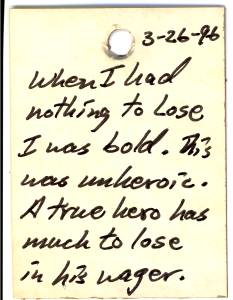 3-26-96
When I had
nothing to Lose
I was bold. This
was unheroic.
A true hero has
much to lose
in his wager.